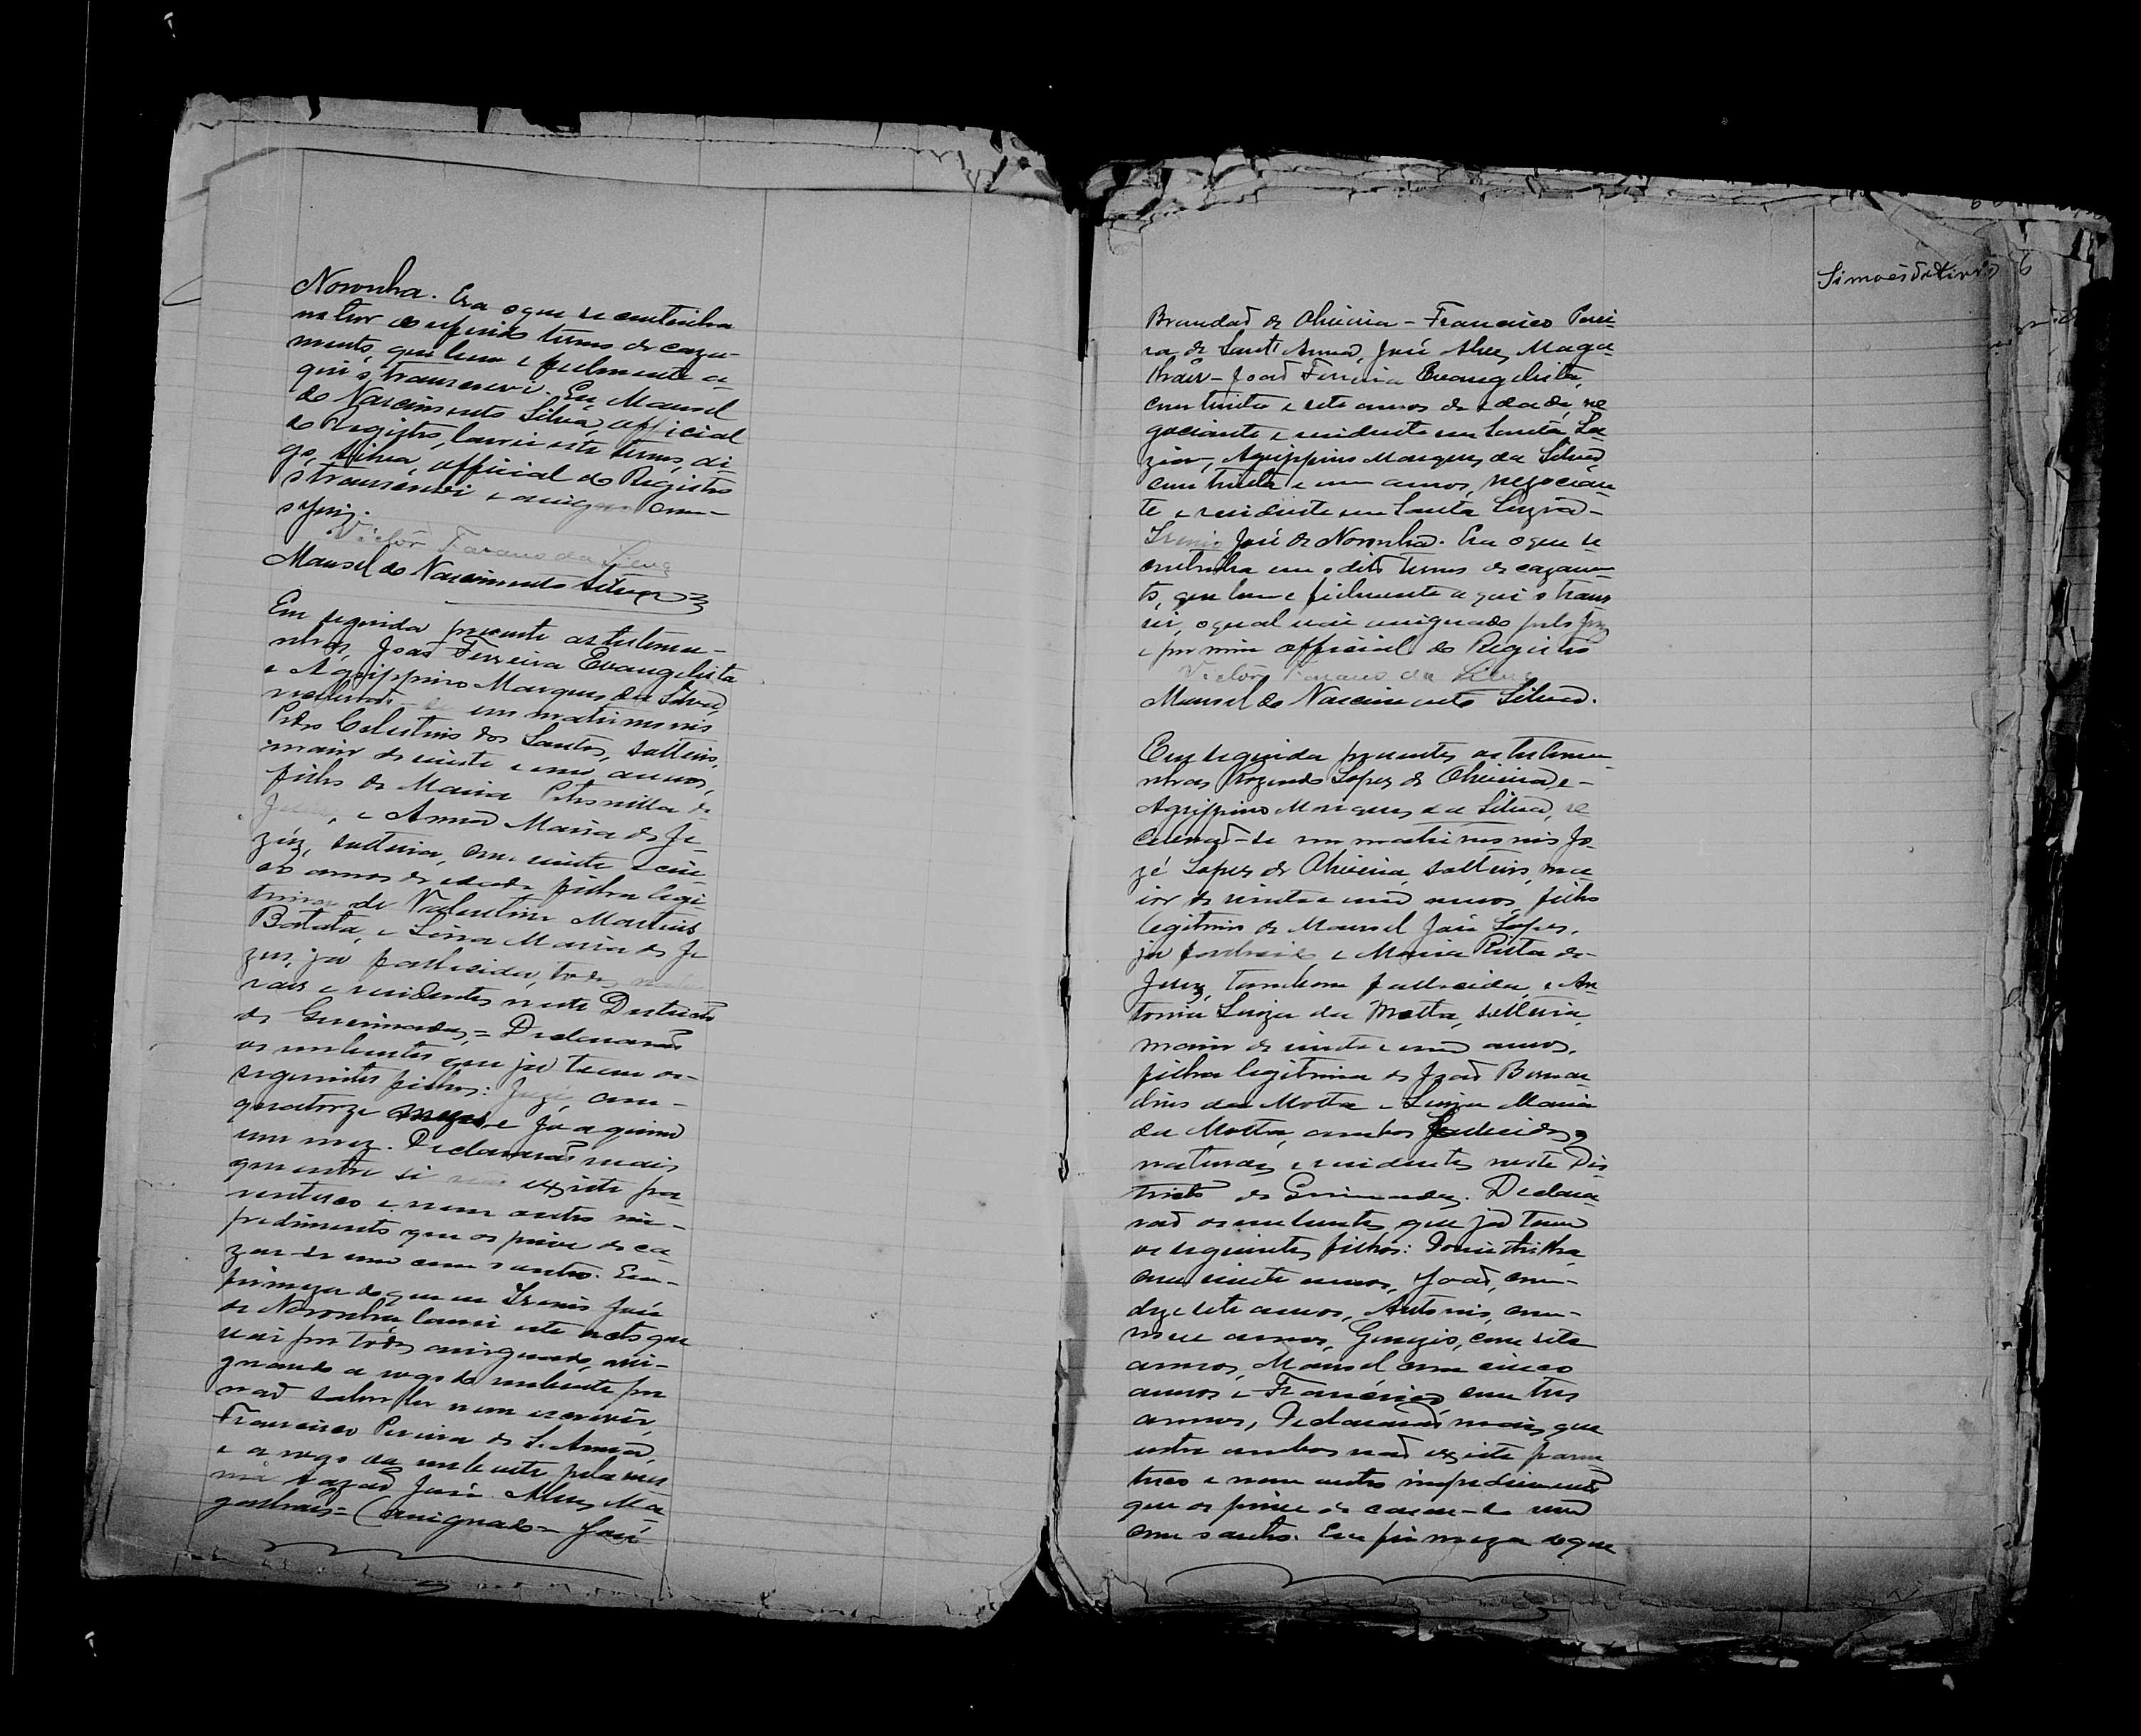 Noronha. Era o que se continha
no teor do referido termo de caza-
mento, que bem e fielmente a-
qui o transcrevi. Eu Manoel
do Nascimento Silva, official
do Registro, lavrei este termo, di-
go, Silva, official do Registro
o transcrevi e assigno com-
o Juiz.
Victor
Manoel do Nascimento Silva
Em seguida presente as testemu-
nhas, João Ferreira Evangelista
e Agrippino Marques da Silva,
em matrimonio
Pedro Celestino dos Santos, solteiro,
maior de vinte e um annos,
filho de Maria Petronilla de
Jesus, e Anna Maria de Je-
zuz, solteira, com vinte e cin-
co annos de edade filha legi-
tima de Valentim Martins
Batista, e Lina Maria de Je
zus, ja fallecida, todos natu
raes e residentes neste Districto
de Queimadas, = Declararão
os nubentes que já teem os-
seguintes filhos: José, com-
quatorze mezes e Joaquim
um mez. Declararão mais
que entre si não existe pa-
rentesco e nem outro im-
pedimento que os prive de ca
zar-se um com o outro. Em-
firmeza do que eu Irenio José
de Noronha, lavrei este acto que
vai por todos assignado, assi-
gnando a rogo do nubente por
não saber ler nem escrever,
Francisco Pereira de S. Anna,
e a rogo da nubente pela mes
ma razão José Alves Ma-
galhães = (assignado = José
Simões
6
Brandão de Oliveira - Francisco Perei-
ra de Sant'Anna, José Alves Maga-
lhães - João Ferreira Evangelista,
com trinta e sete annos de edade, ne
gociante e residente em Santa Lu-
zia, Agrippino Marques da Silva,
com trinta e um annos, negocian
te e residente em Santa Luzia -
Irenio José de Noronha. Era o que se
continha em o dito termo de cazamen
to, que bem e fielmente aqui o trans
vi, o qual vai assignado pelo Juiz
e por mim official do Registro
Victor
Manoel do Nascimento Silva.
Em seguida presentes as testemu
nhas Rozendo Lopes de Oliveira, e-
Agrippino Marques da Silva, re
ceberão-se em matrimonio Jo
zé Lopes de Oliveira, solteiro, ma
ior de vinte e um annos, filho
legitimo de Manoel José Lopes,
ja fallecido e Maria Ritta de-
Jesuz, tambem fallecida, e An
tonia Luiza da Motta, solteira,
maior de vinte e um annos,
filha legitima de João Bernar
dino da Motta e Luiza Maria
da Motta, ambos fallecidos,
naturaes e residentes neste Dis
tricto de Queimadas. Declara
rão os nubentes que já teem
os seguintes filhos:
com vinte annos, João, com-
dezesete annos, Antonio, com-
nove annos, Genezio, com sete
annos, Manoel com cinco
annos e Francisco com tres
annos, Declararão mais que
entre ambos não existe paren
tesco e nem outro impedimento
que os prive de cazar-se um
com o outro. Em firmeza do que